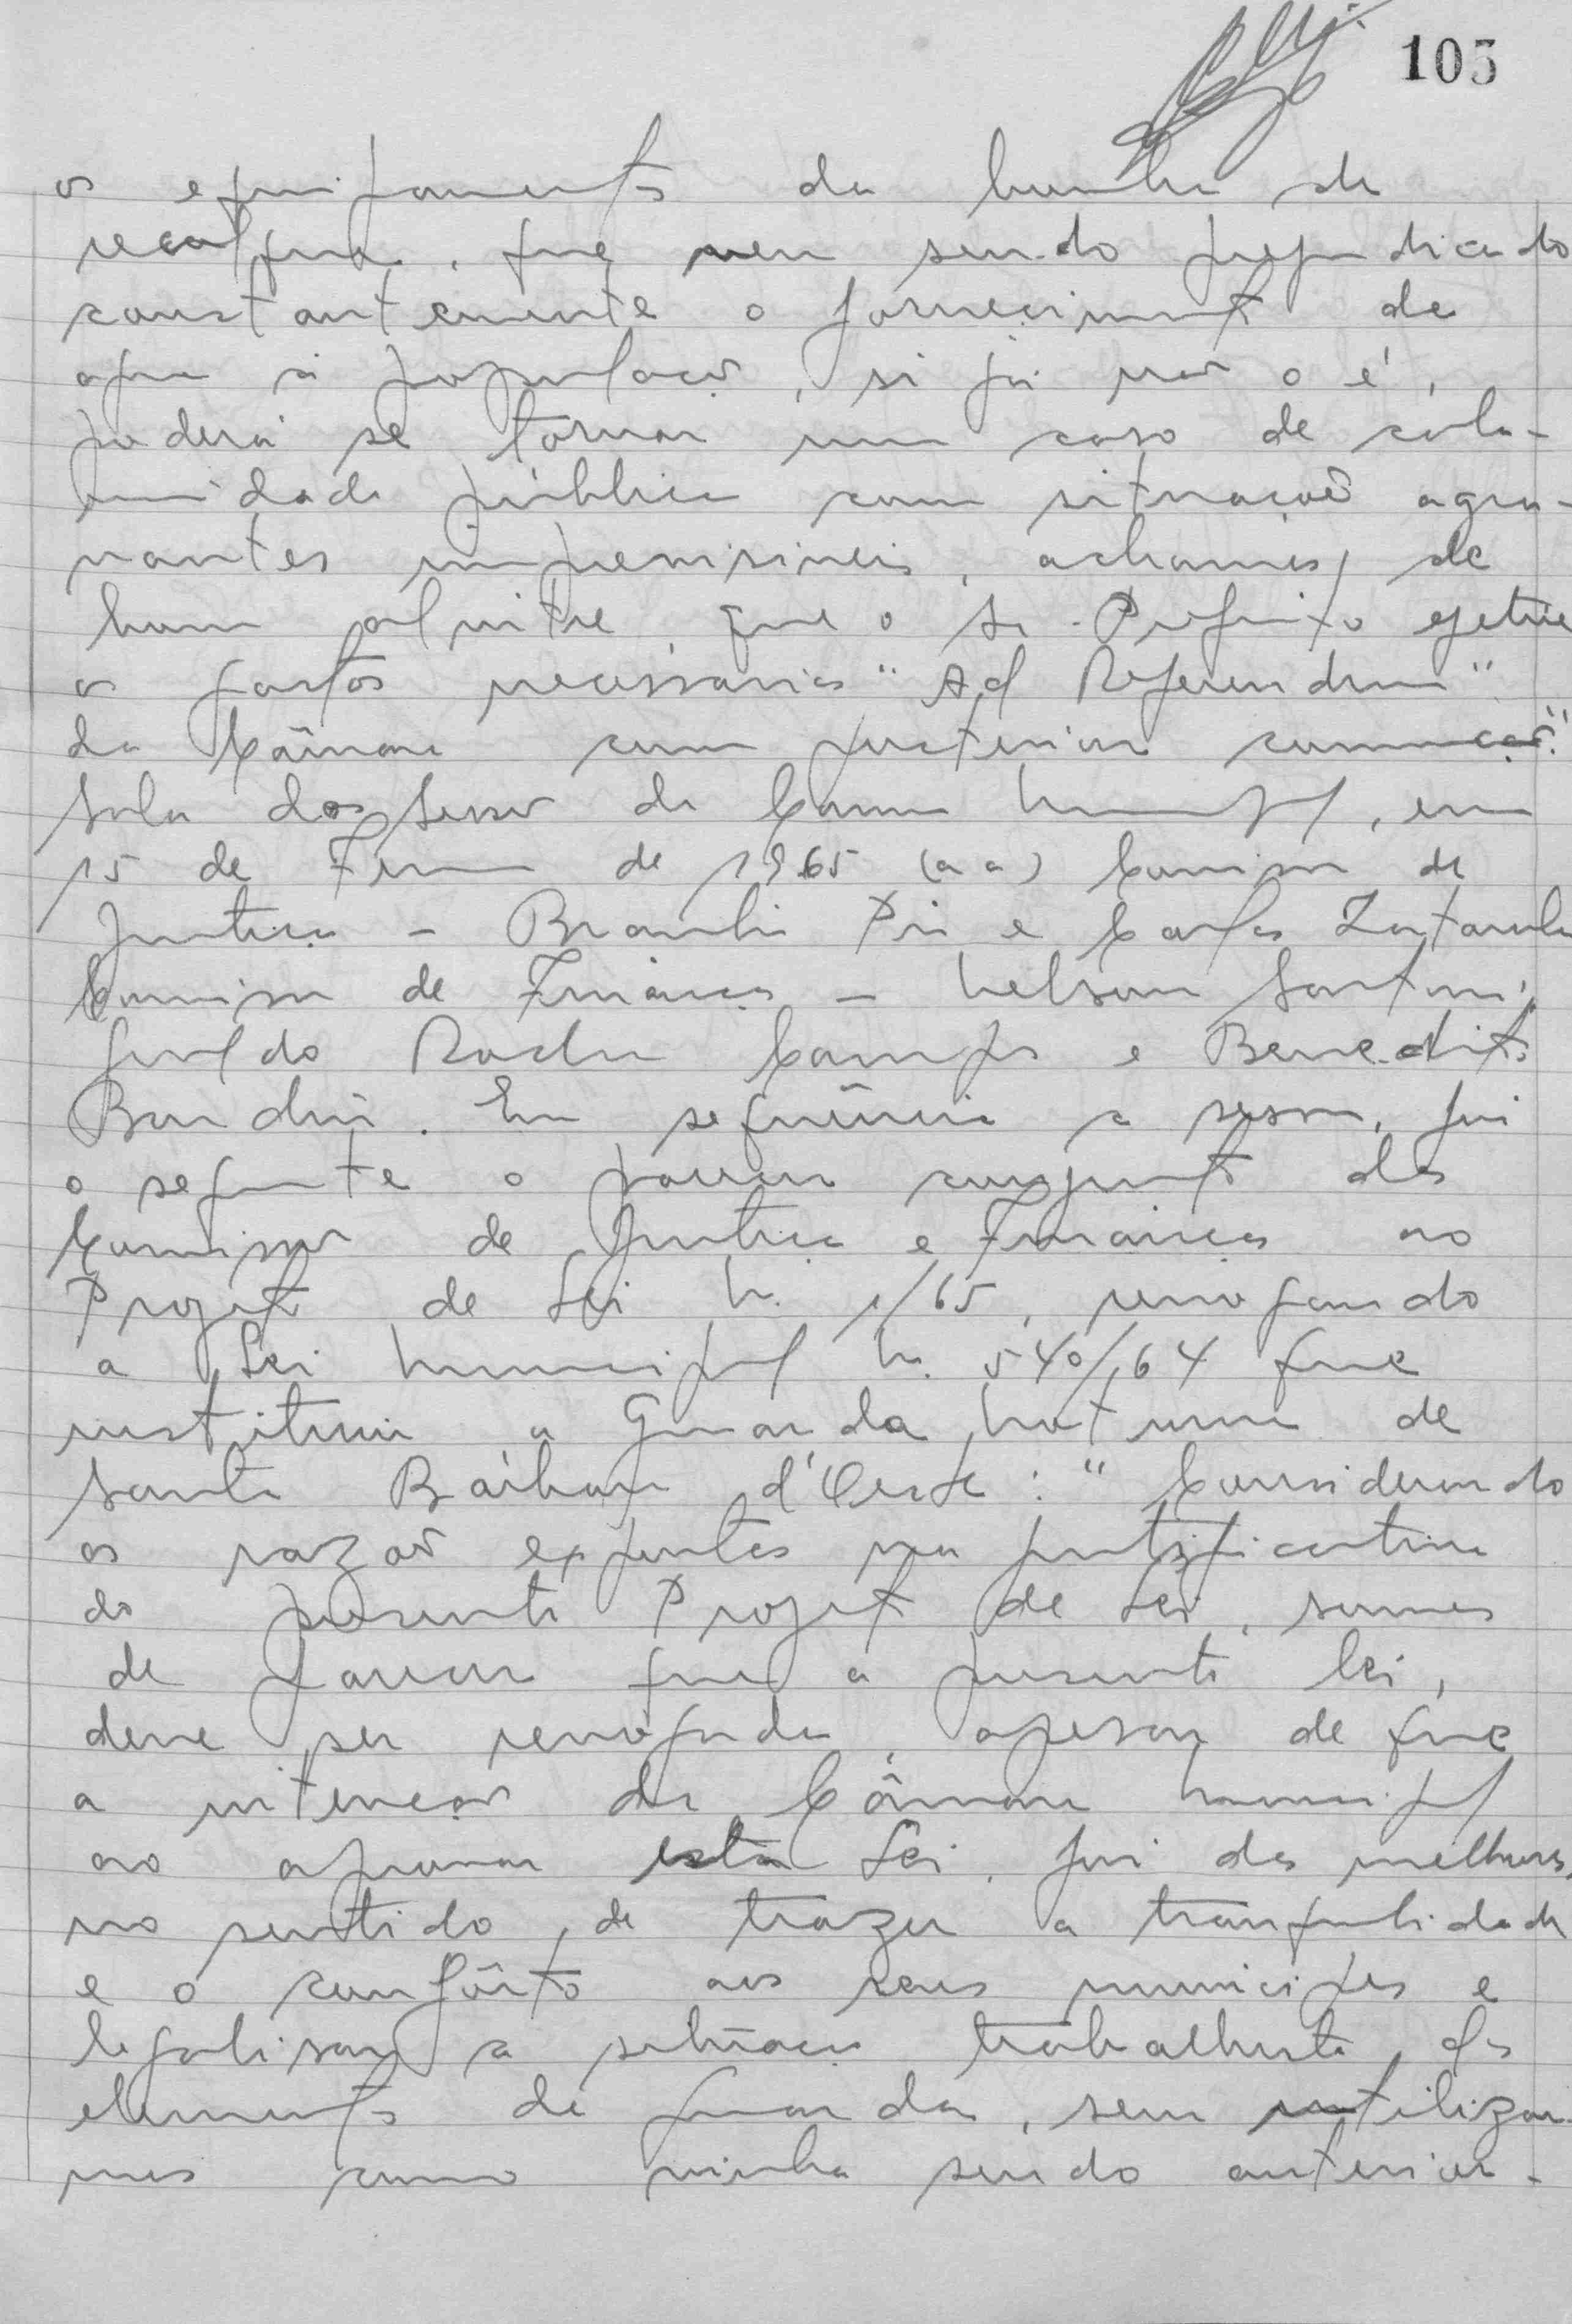 105
os equipamentos da bomba de
recalque, que vem sendo prejudicado
constantemente o fornecimento de
agua á população, si já não o é,
poderá se tornar um caso de cala-
midade pública com situação agra-
vantes imprevisiveis, achamos de
bom alvitre, que o Sr. Prefeito efetue
os gastos necessarios "Ad Referendum"
da Câmara com posterior comunicação."
Sala das Sessões da Camara Municipal, em
15 de Fevereiro de 1965 (a a) Comissão de
Justiça – Braulio Pio e Carlos
Comissão de Finanças – Nelson Santoni,
Geraldo Rocha Campos e Benedito
. Em sequência a sessão, foi
o seguinte o parecer conjunto das
Comissões de Justiça e Finanças ao
Projeto de Lei N. 1/65, revogando
a Lei Municipal N. 540/64 que
instituiu a Guarda Noturna de
Santa Bárbara d'Oeste: "Considerando
as razões expostas na justificativa
do presente Projeto de Lei, somos
de parecer que a presente lei,
deve ser revogada, apesar de que
a intenção da Câmara Municipal
ao aprovar esta Lei, foi das melhores,
no sentido de trazer a tranquilidade
e o confôrto aos seus municipes e
legalisar a situação trabalhista dos
elementos da guarda, sem utilizar-
mos como vinha sendo anterior-